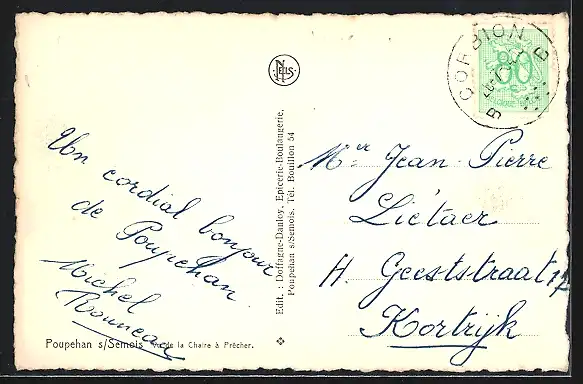 Un cordial bonjour
de Poupehan
Michel
Poupehan s/Semois Vue de la Chaire à Prêcher.
NELS
Edit. : Doffagne-Dauley, Epicerie-Boulangerie,
Poupehan s/Semois. Tél. Bouillon 54
CORBION
B B
80
Mer Jean-Pierre
Lietaer
H. Geeststraat 17
Kortrijk